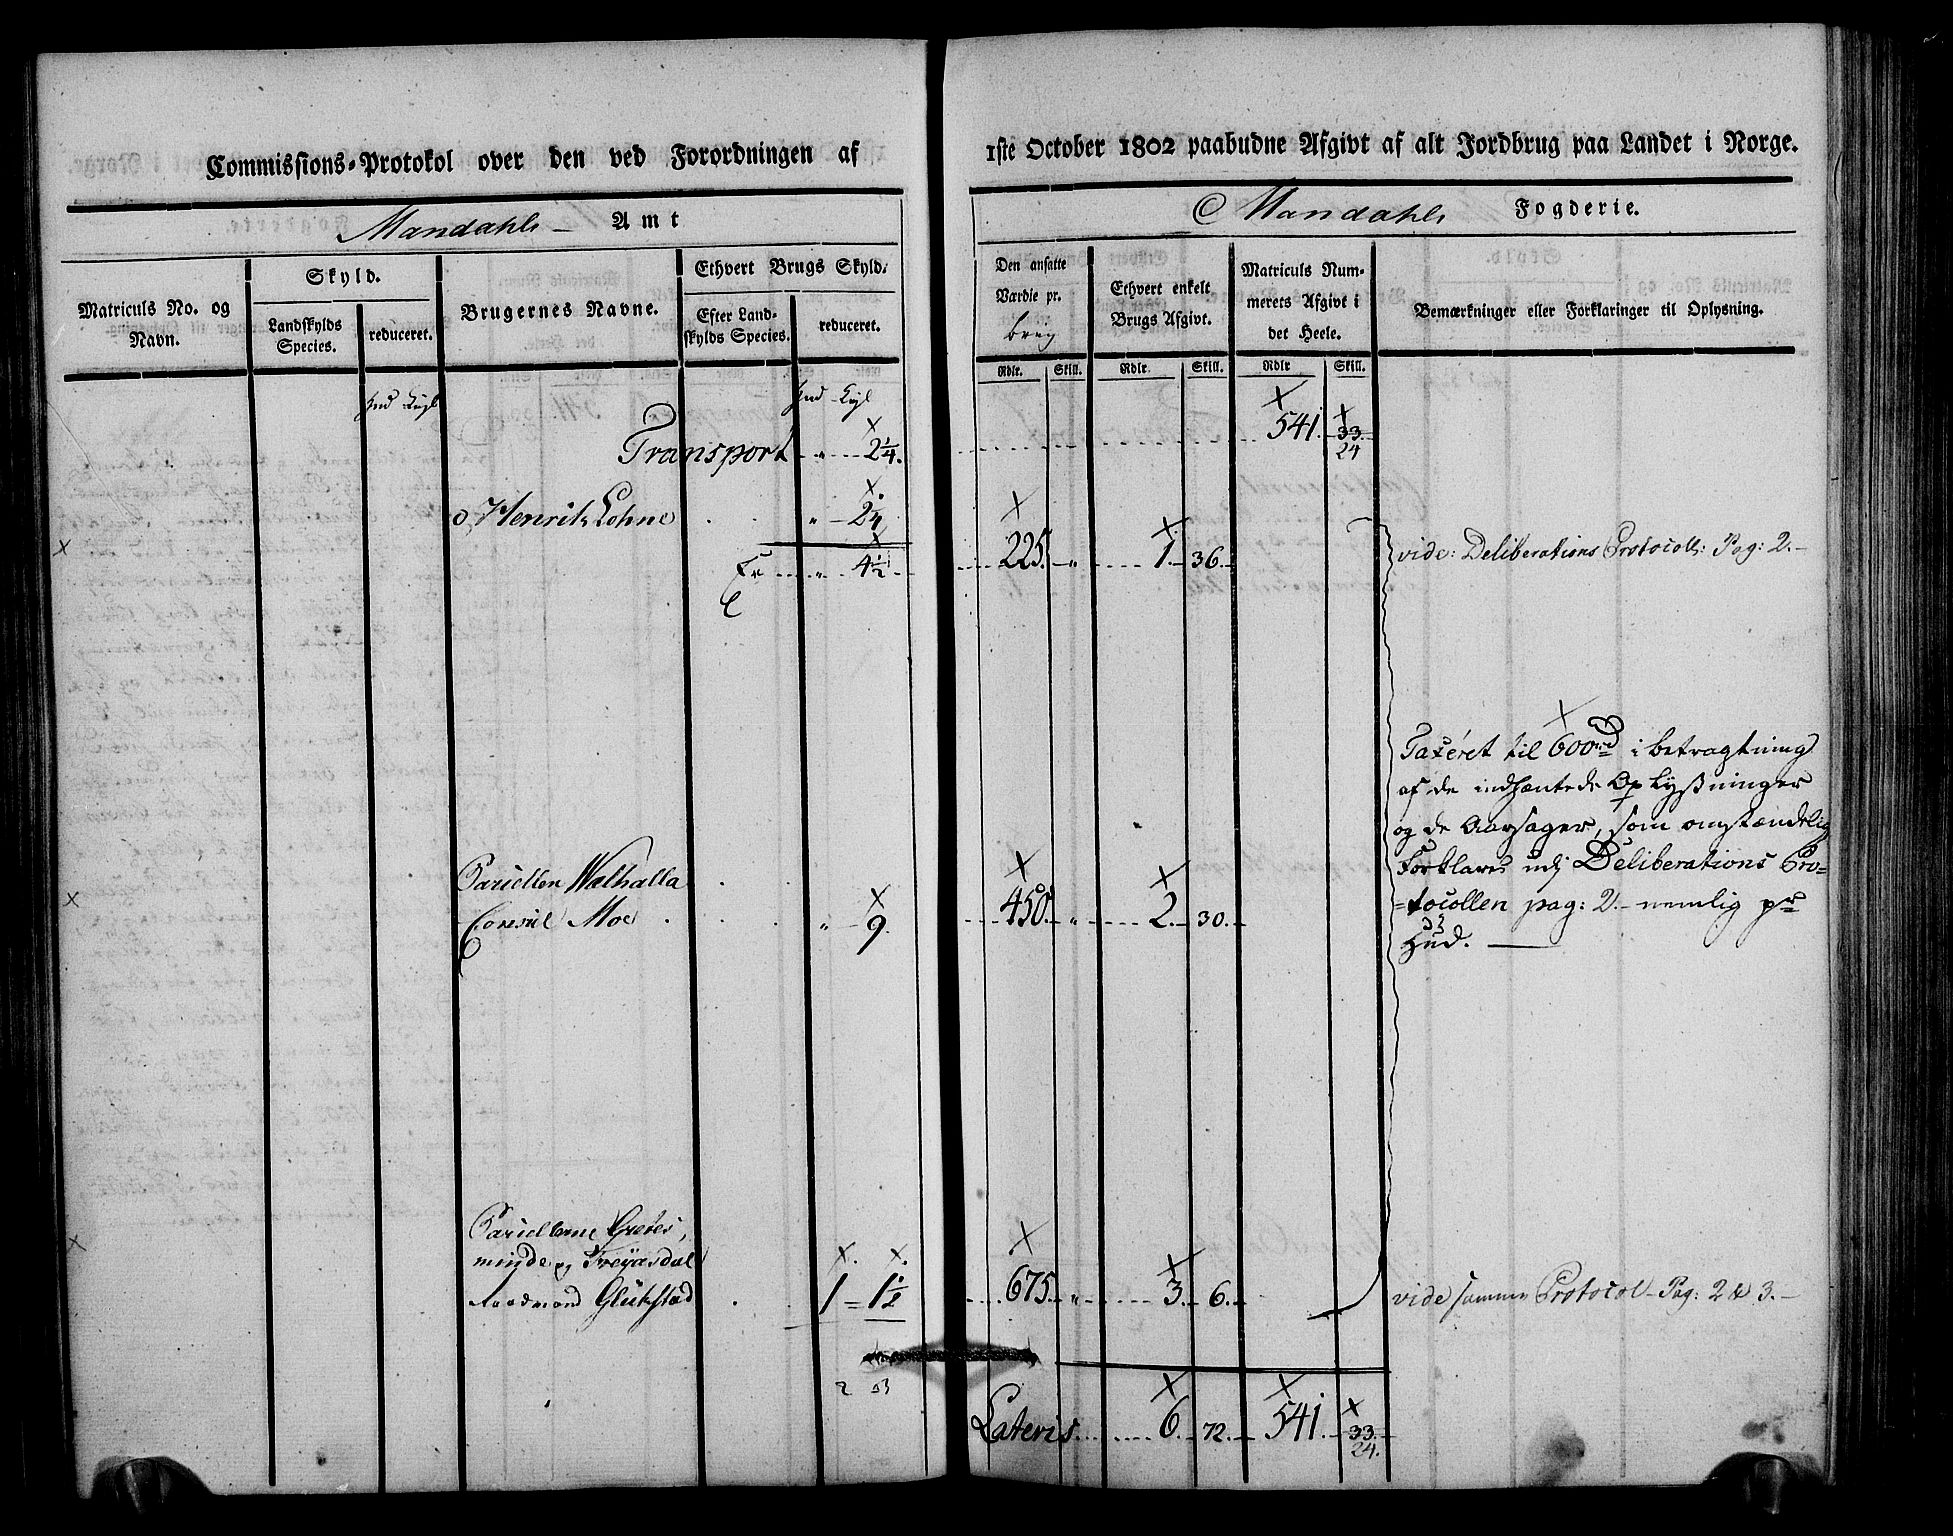 Commissions-Protokol over den ved Forordningen af
Mandahls Amt
Matriculs No. og Navn.
Skyld.
Landskylds Species.
reduceret.
Brugernes Navne.
Ethvert Brugs Skyld.
Efter Landskylds Species.
reduceret.
Hud Kgl
Hud Kgl
Transport " 2¼.
Henrik Lohne " 2¼
Er " 4½
Parcellen Walhalla
Consul Moe " 9.
Parcellerne Gretes,
minde og Freyasdal
Raadmand Glükstad 1 = 1½
2 3
1ste October 1802 paabudne Afgivt af alt Jordbrug paa Landet i Norge.
Mandahls Fogderie.
Den ansatte Værdie pr. brug
Ethvert enkelt Brugs Afgivt.
Matriculs Nummerets Afgivt i det Heele.
Bemærkninger eller Forklaringer til Oplysning.
Rdlr. Skill. Rdlr. Skill. Rdlr Skill.
541. 33.
24
225. " 1. 36. vide: Deliberations Protocoll: Pag: 2.
Taxeret til 600rd i betragtning
af de indhæntede Oplysninger
og de Aarsager, som omstændelig
Forklares udj Deliberations Pro=
=tocollen pag: 2. nemlig pr
Hud.
450. " 2. 30.
675. " 3. 6. vide samme Protocol Pag: 2 & 3.
Lateris 6. 72. 541. 33.
24.